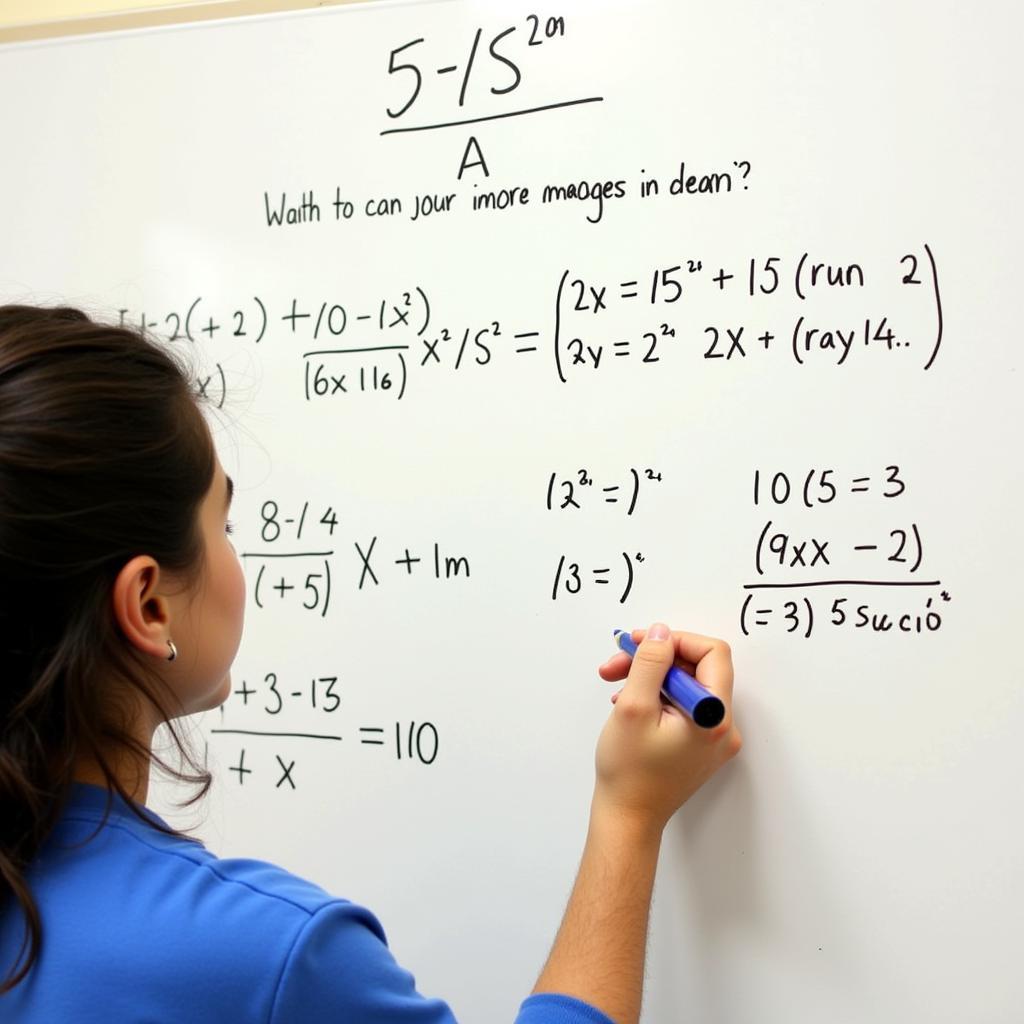 5-/S²⁰ⁿ
A
Waith to can your imore maoges in deam?
-2(+2) +/0-1x²)
x)
(6x 116)
x²/S² =
(2x = 15²ⁿ + 15 (run 2)
2y = 2²ⁿ 2X + (ray 14..)
8-/4
(+5)
X + 1m
(2²· =)²ⁿ
/3 =)
10 (5 = 3
(9xx - 2)
(= 3) 5 Su ció
+3-13
+ x
=110